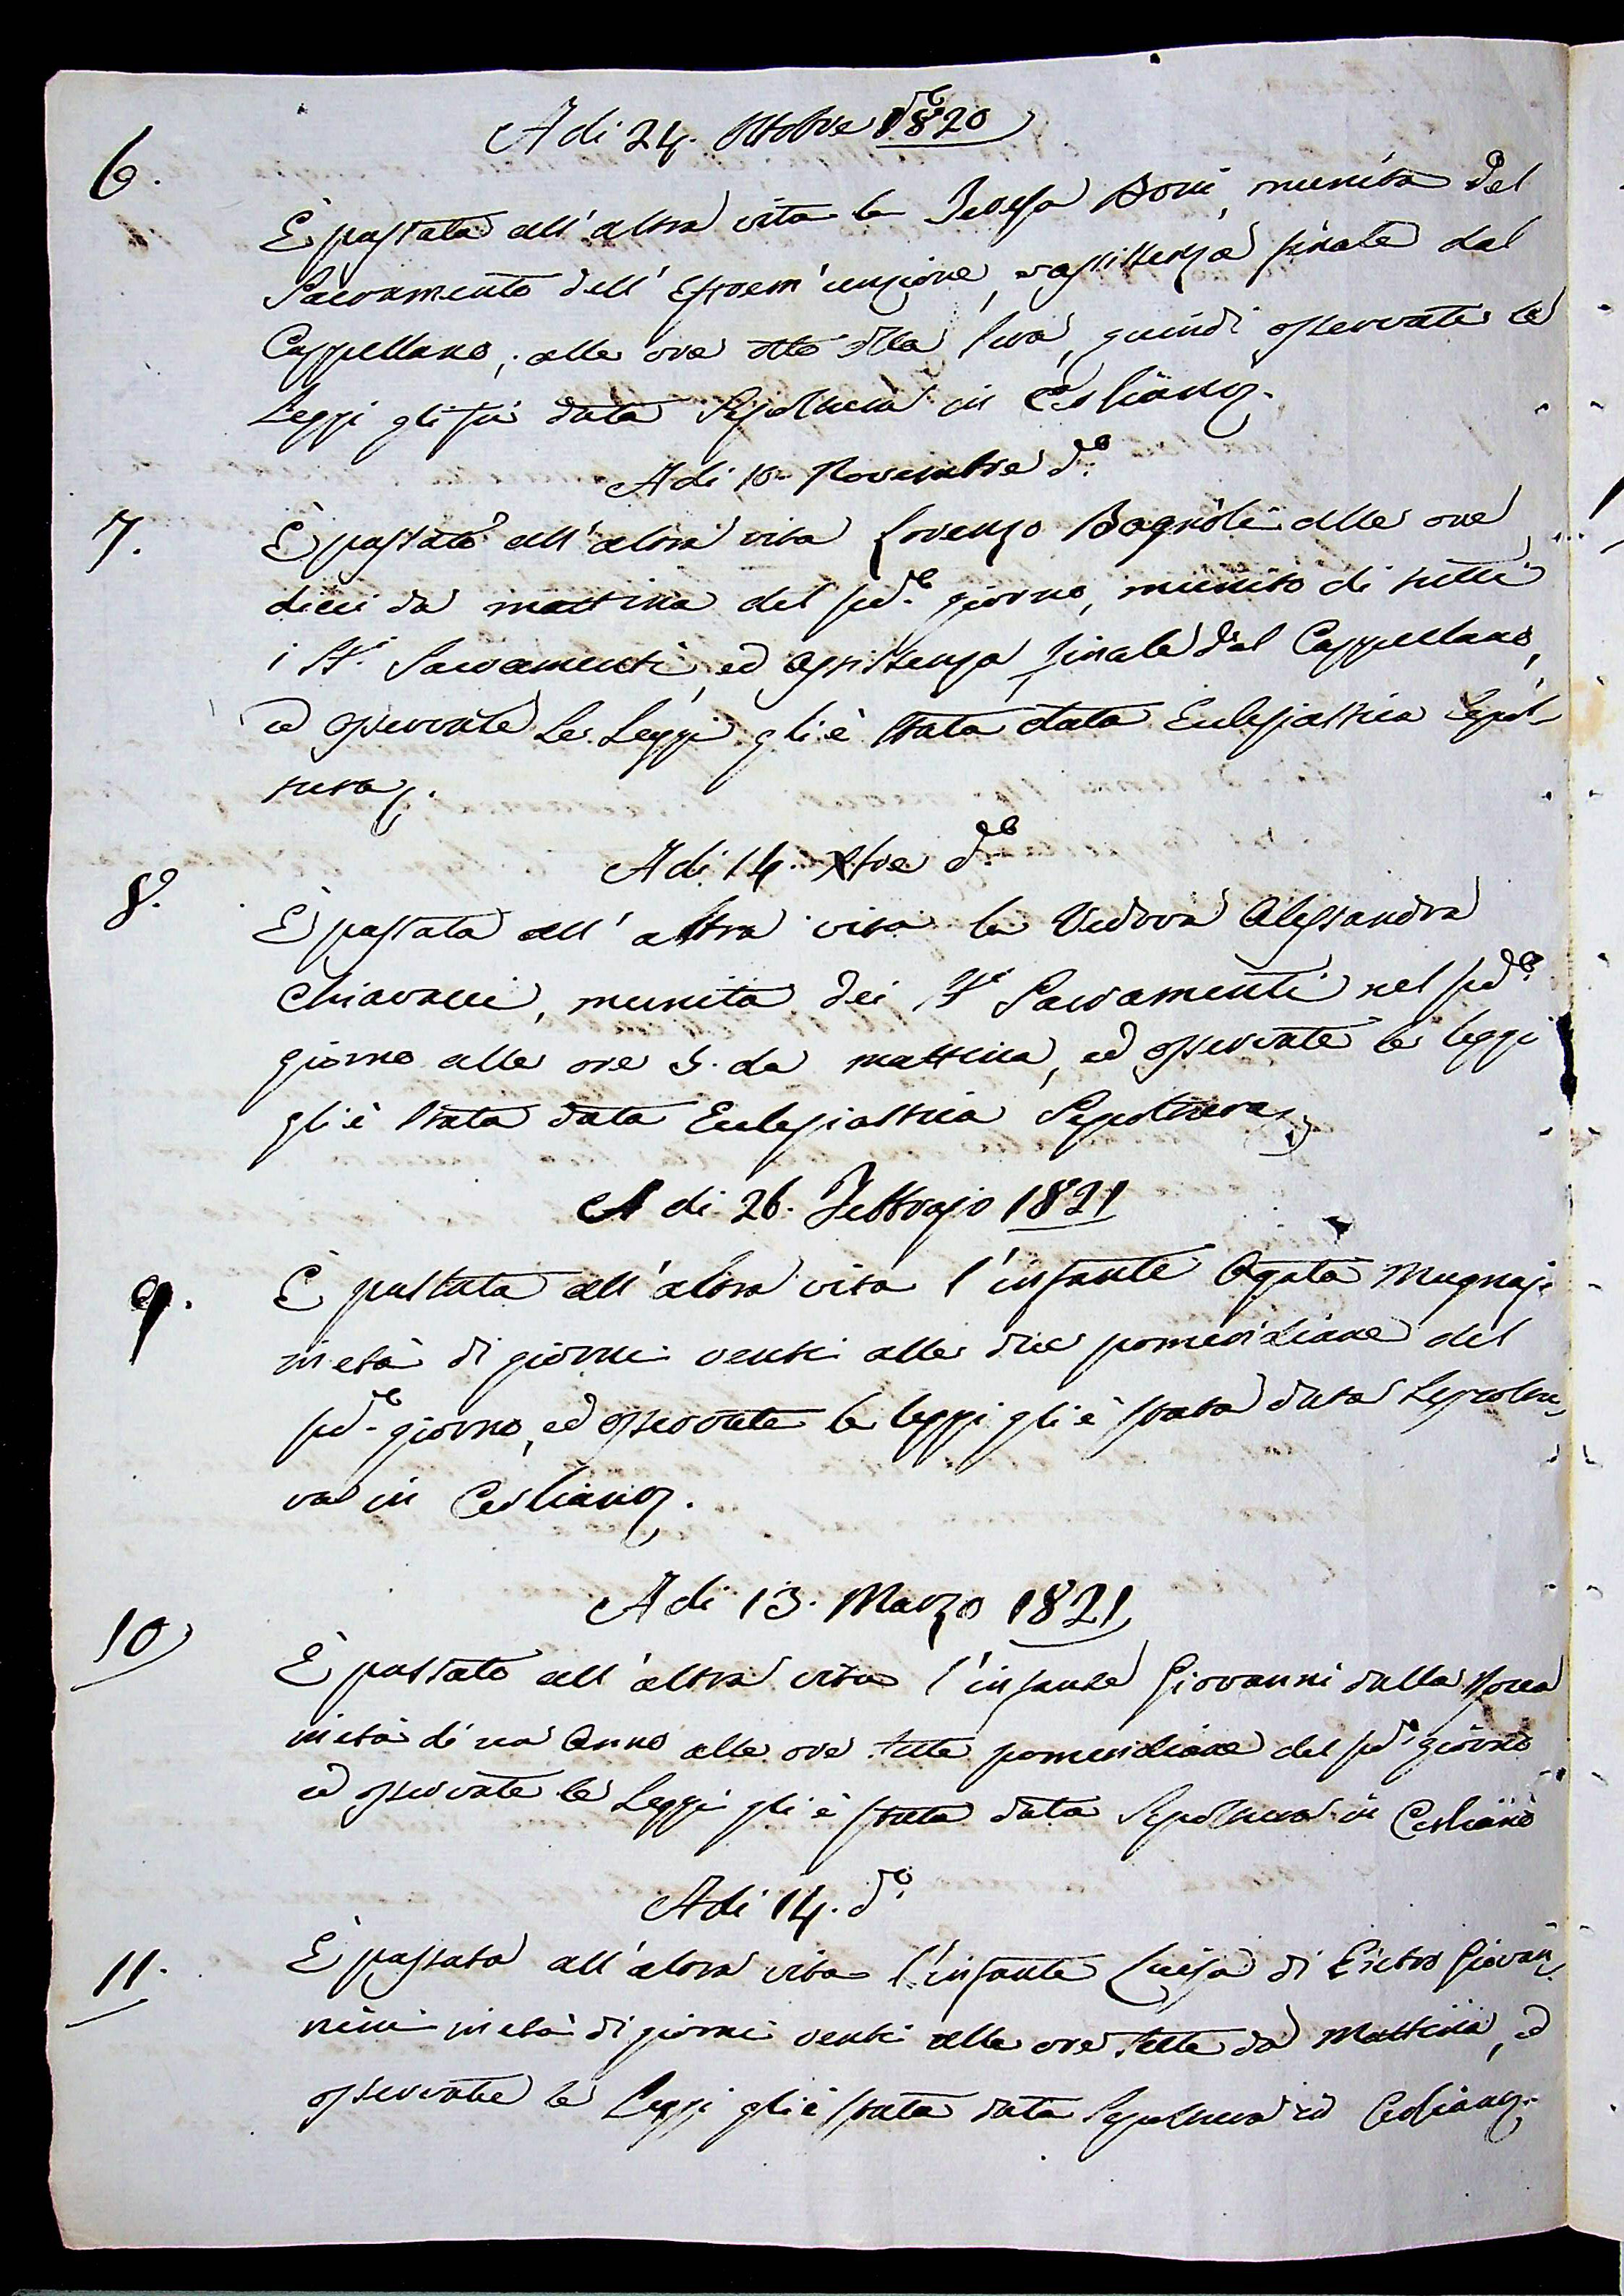 A di 24. Ottobre 1820
6.
È passata all'altra vita la Teresa Boni, munita del
Sacramento dell'Estrem'unzione, e assistenza finale dal
Cappellano, alle ore otto della sera, quindi osservate le
Leggi gli fù data Sepoltura in Cesliano.
A di 10. Novembre do.
7.
È passato all'altra vita Lorenzo Bagnoli alle ore
dieci da mattina del sudo. giorno, munito di tutti
i SSi. Sacramenti, ed assistenza finale dal Cappellano,
ed osservate Le Leggi gli è stata data Eclesiastica Sepol-
tura.
A di 14. Xbre do.
8.
È passata all'altra vita la Vedova Alessandra
Chiavacci, munita dei SSi Sacramenti nel sudo.
giorno alle ore 5. da mattina, ed osservate le leggi
gli è stata data Eclesiastica Sepoltura
A di 26. Febbrajo 1821
9.
È passata all'altra vita l'infante Agata Mugnaj
in età di giorni venti alle due pomeridiane del
sudo. giorno, ed osservate le leggi gli è stata data Sepoltu-
ra in Cesliano.
A di 13. Marzo 1821
10
È passato all'altra vita l'infante Giovanni dalla Rocca
in età di un Anno alle ore sette pomeridiane del sudo. giorno
ed osservate le Leggi gli è stata data Sepoltura in Cesliano
A di 14. do.
11.
È passata all'altra vita l'infante Luisa di Pietro Giovan-
nini in età di giorni venti alle ore sette da Mattina, ed
osservate le Leggi gli è stata data Sepoltura in Cesliano.